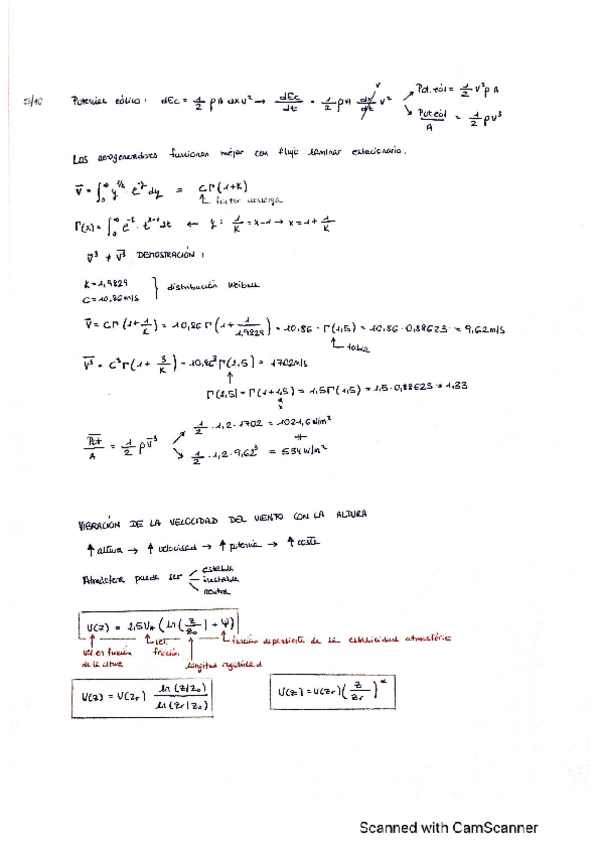 5/10 Potencial eólico: dEc = 1/2 ρ A dx v² → dEc/dt = 1/2 ρ A dx/dt v² Pot. eól = 1/2 v³ ρ A
v
Pot eól/A = 1/2 ρ v³
Los aerogeneradores funcionan mejor con flujo laminar estacionario.
V̄ = ∫₀^∞ y^(1/k) e^(-y) dy = CΓ(1+K)
↑ factor
Γ(x) = ∫₀^∞ e^(-t) · t^(x-1) dt ← y: 1/K = x-1 → x = 1 + 1/K
V̄³ ≠ V̄³ DEMOSTRACIÓN:
K = 1,9829
C = 10,86 m/s } distribución Weibull
V̄ = CΓ(1+1/K) = 10,86 Γ(1+1/1,9829) = 10,86 · Γ(1,5) = 10,86 · 0,88623 = 9,62 m/s
↑ tabla
V̄³ = C³Γ(1+3/K) = 10,86³Γ(2,5) = 1702 m/s
↑
Γ(2,5) = Γ(1+1,5) = 1,5Γ(1,5) = 1,5 · 0,88623 = 1,33
x
Pot/A = 1/2 ρ V̄³ 1/2 · 1,2 · 1702 = 1021,6 w/m²
≠
1/2 · 1,2 · 9,62³ = 534 w/m²
VIBRACIÓN DE LA VELOCIDAD DEL VIENTO CON LA ALTURA
↑ altura → ↑ velocidad → ↑ potencia → ↑ coste
Atmósfera puede ser estable
inestable
neutra
U(z) = 2,5 V* (ln(z/z₀) + Ψ)
función dependiente de la estabilidad atmosférica
vel en función vel.
de la altura fricción longitud rugosidad
U(z) = U(zr) ln(z/z₀)/ln(zr/z₀) U(z) = U(zr)(z/zr)^α
Scanned with CamScanner